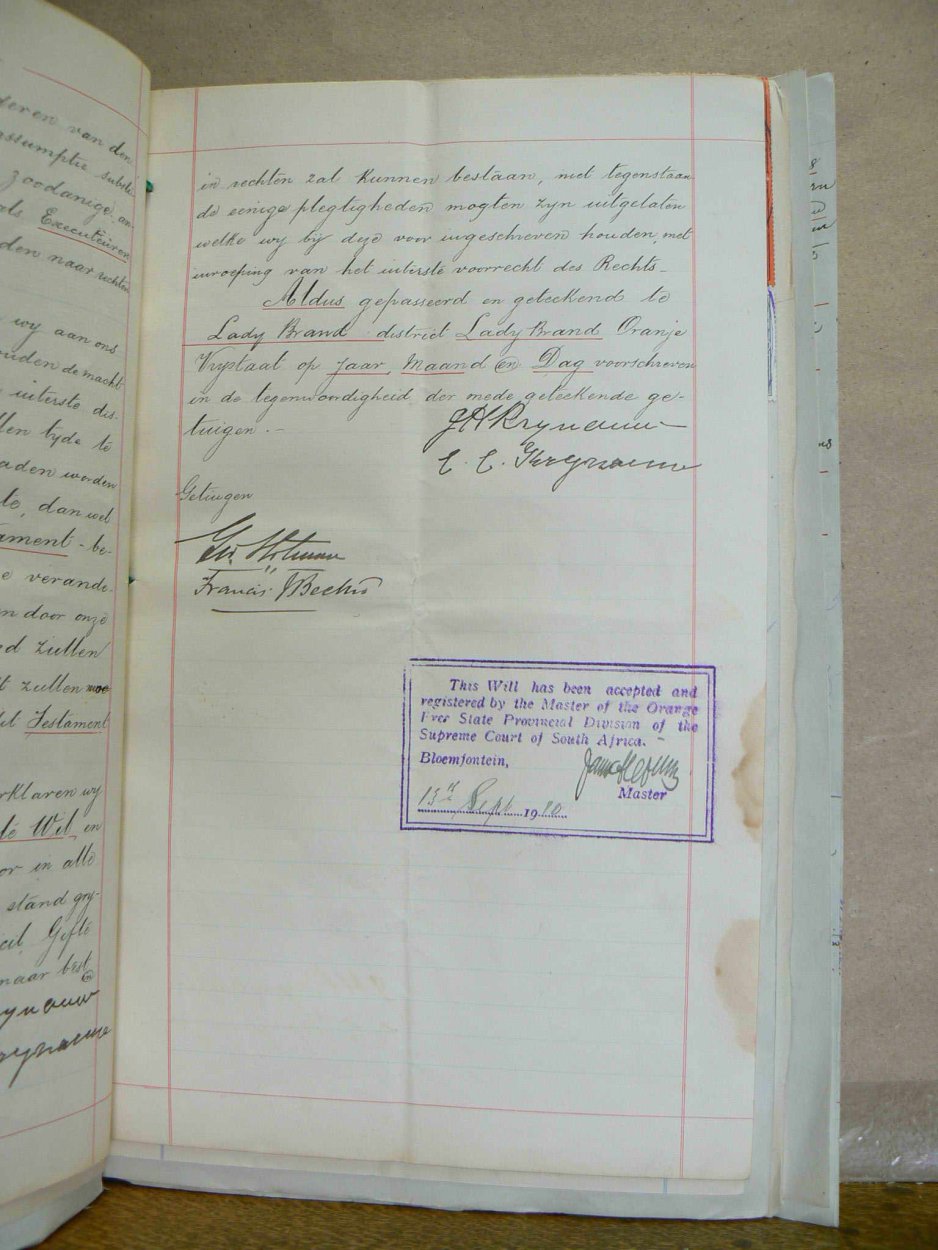 deren van den
assumptie substi
zoodanige, en
als Executeuren
den naar rechten
wy aan ons
ouden de macht
uiterste dis-
llen tyde te
aden worden
te, dan wel
tament - be-
e verande-
n door onze
nd zullen
t zullen moe
dit Testament
rklaren wy
te Wil, en
or in alle
stand gry-
cil Gifte
naar best
in rechten zal kunnen bestaan, niet tegenstaan
de eenige plegtigheden mogten zyn uitgelaten
welke wy by deze voor ingeschreven houden, met
inroeping van het uiterste voorrecht des Rechts -
Aldus gepasseerd en geteekend te
Lady Brand district Lady Brand Oranje
Vrystaat op Jaar, Maand en Dag voorschreven
in de tegenwoordigheid der mede geteekende ge-
tuigen. -
Getuigen
Francis
This Will has been accepted and
registered by the Master of the Orange
Free State Provincial Division of the
Supreme Court of South Africa.
Bloemfontein,
Master
13th Sept 1910